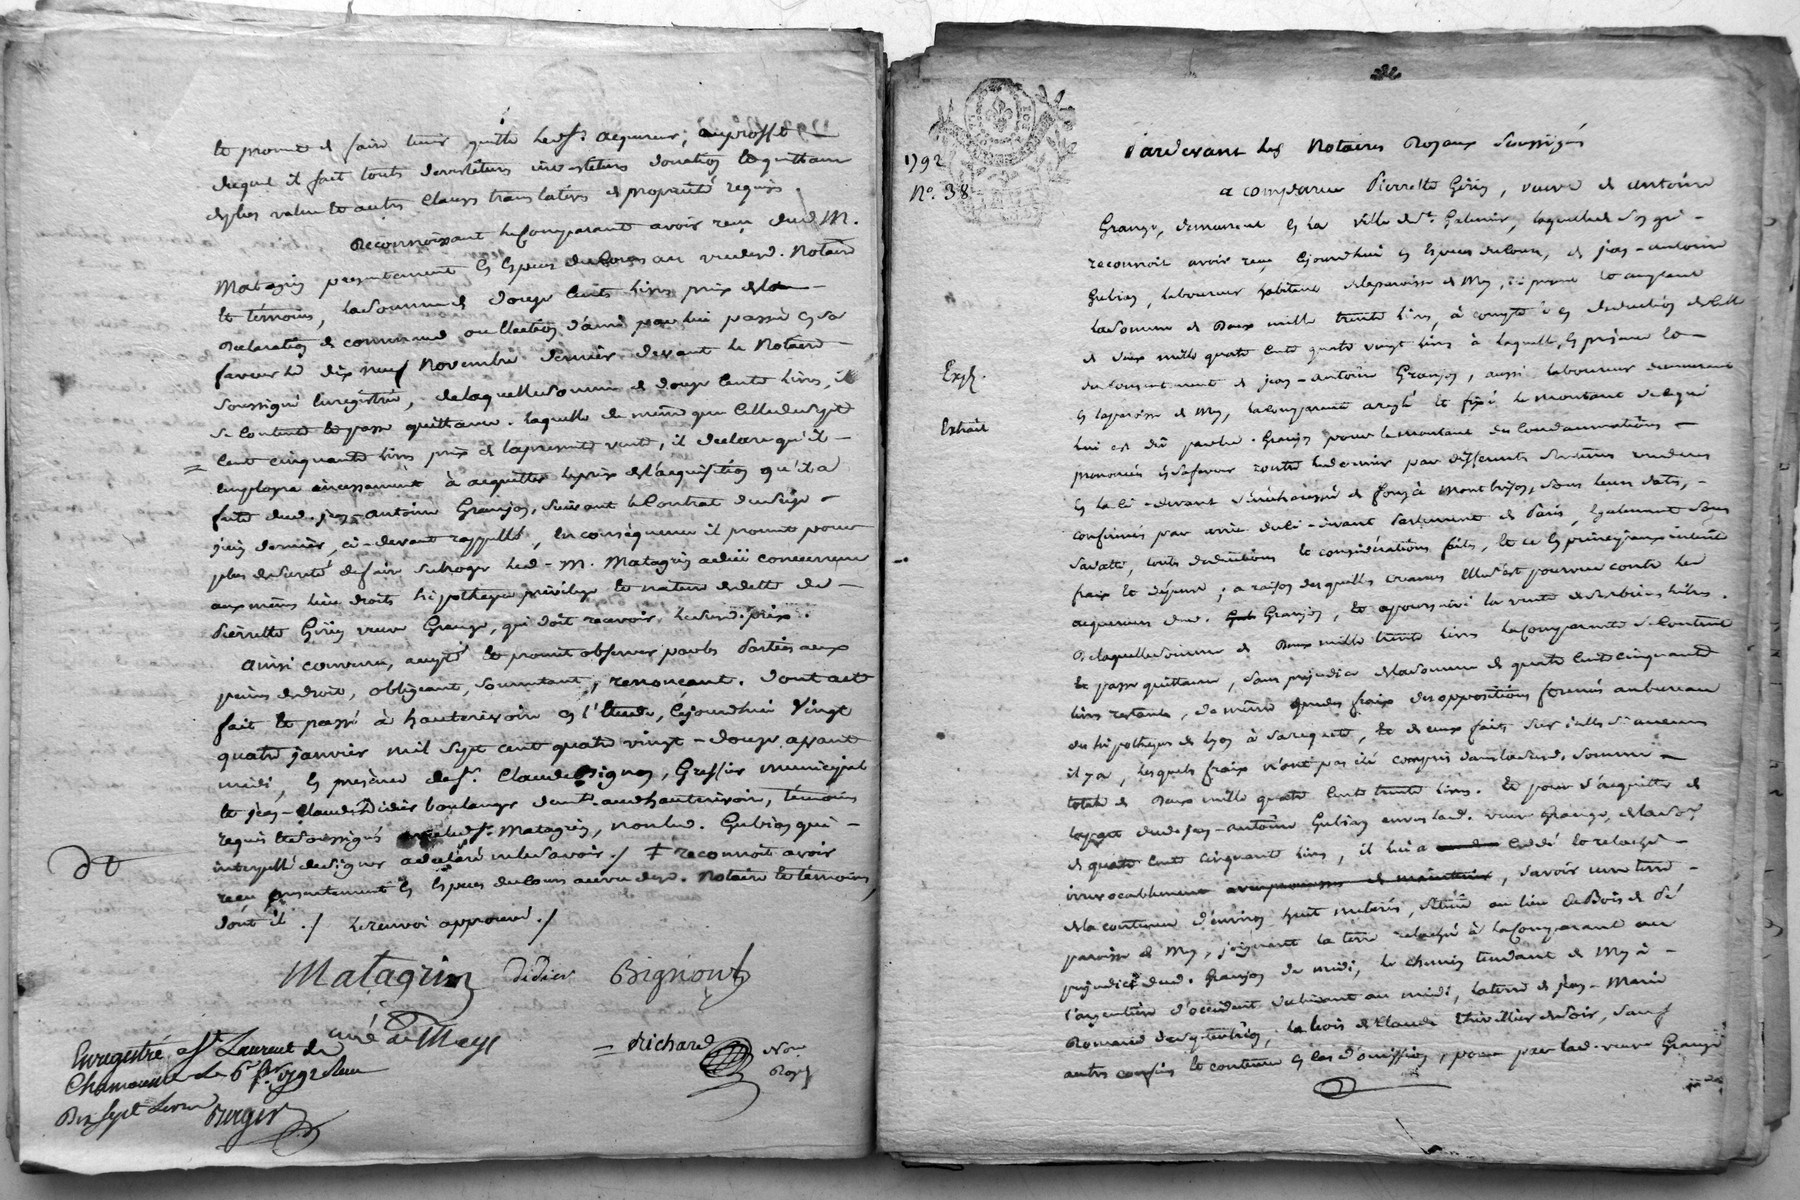 et promet de faire tenir quitte led. Sr. acquereur, au proffit
duquel il fait touts devestiture investiture donation et quittance
de plus value et autres clauses translatives de propriété requises
Reconnoissant le comparant avoir reçu dud. M.
Matagrin présentement en espèces du cours au vu desd. Notaire
et témoins, la somme de douze cents livres prix de la
déclaration de commande ou élection d'ami par lui passée en sa
faveur le dix neuf Novembre dernier devant le Notaire
soussigné Enregistrée, de laquelle somme de douze cents livres, il
se contente et passe quittance. laquelle de même que celle de sept
cent cinquante livres prix de la presente vente, il declare qu'il
employra incessament à acquitter le prix de l'acquisition qu'il a
faite dud. jean-antoine Granjon, suivant le Contrat du seize
juin dernier, ci-devant rappellé, en consequence il promet pour
plus de sureté de faire subroger led. M. Matagrin à due concurrence
aux mêmes lieu droits hipotheque privilege et nature de dette de
Pierrette Girin veuve Grange, qui doit recevoir led. prix.
Ainsi convenu, accepté et promis observer par les Parties aux
peines de droit, obligeant, soumettant, renonçant. Dont acte
fait et passé à hauterivoire en l'Etude, cejourdhui vingt
quatre janvier mil sept cent quatre vingt-douze avant
midi, en présence de sr. Claude Bignon, Greffier municipal
et jean-Claude Didier boulanger demt. aud. hauterivoire, témoins
requis et soussignés avec led. Sr. Matagrin, non led. Gubian qui
interpellé de signer a déclaré ne le savoir ./ ‡ reconnoit avoir
reçu présentement en espèces du cours au vu desd. Notaire et témoins,
dont il ./ le renvoi approuvé ./
Matagrin Didier Bignont
curé de Meys
= Richard Nore
Royl
Enregistré a St. Laurent de
Chamousset le 6e fer. 1792 Reçu
Dix sept livres
Burger
1792
No. 38
Expé.
Extrait
Pardevant les Notaires Royaux Soussignés
a comparue Pierrette Girin, veuve de antoine
Grange, demeurant en la ville de St. Galmier, laquelle de son gré
reconnoit avoir reçu cejourdhui en espèces du cours, de jean-antoine
Gubian, laboureur habitant de la paroisse de Meys, ici present et acceptant
la somme de Deux mille trente livres, à compte et en deduction de celle
de deux mille quatre cents quatre vingt livres à laquelle, en présence et
du consentement de jean-antoine Granjon, aussi laboureur demeurant
en la paroisse de Meys, la comparante a reglé et fixé le montant de ce qui
lui est dû par led. Granjon pour le montant des condamnations
prononcées en sa faveur contre led. dernier par differents sentences rendues
en la ci-devant sénéchaussée de forez à Montbrison, sous leurs dates,
confirmées par arret du ci-devant Parlement de Paris, également sous
sa date, touts deductions et considérations faits, et ce en principaux intérêts
fraix et dépens; a raison desquelles creances elle s'est pourvue contre les
acquereurs dud. Granjon, et a poursuivi la vente de ses biens libres.
De laquelle somme de Deux mille trente livres la comparante se contente
et passe quittance, sans prejudice de la somme de quatre cents cinquante
livres restante, de même que des fraix des oppositions formées au bureau
des hipotheques de Lyon à sa requête, et de ceux faits sur icelles si aucuns
il y a, lesquels fraix n'ont pas été compris dans lad. somme
totale de Deux mille quatre cents trente livres. Et pour s'acquitter de
la part dud. jean-antoine Gubian envers lad. veuve Grange, de lad. somme
de quatre cents cinquante livres, il lui a cédé et relaché
irrevocablement avec promesse de maintenir, savoir une terre
de la contenue d'environ huit metérées, située au lieu du Bois de Dé
paroisse de Meys, joignant la terre relachée à la comparante au
préjudice dud. Granjon de midi, le chemin tendant de Meys à
l'argentière d'occident declinant au midi, la terre de jean-Marie
Romand de septentrion, le bois de Claude Thivillier de soir, sauf
autres confins et contenue en cas d'omission, pour par lad. veuve Grange